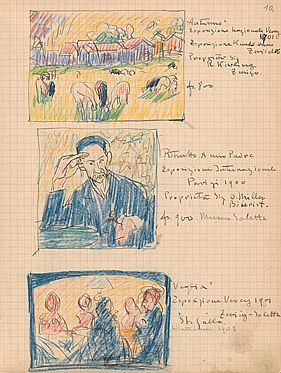 10
Autunno
Esposizione Nazionale Vevey
1901
Esposizione Kunsthaus
Zurigo
Proprietà Sig
R. Kisling
Zurigo.
fr. 800
Ritratto A mio Padre
Esposizione Internazionale
Parigi 1900
Proprietà Sig O. Miller
Biberist.
fr. 900 Museo Soletta
Veglia
Esposizione Vevey 1901
Zurigo-Soletta
St. Gallo
1903